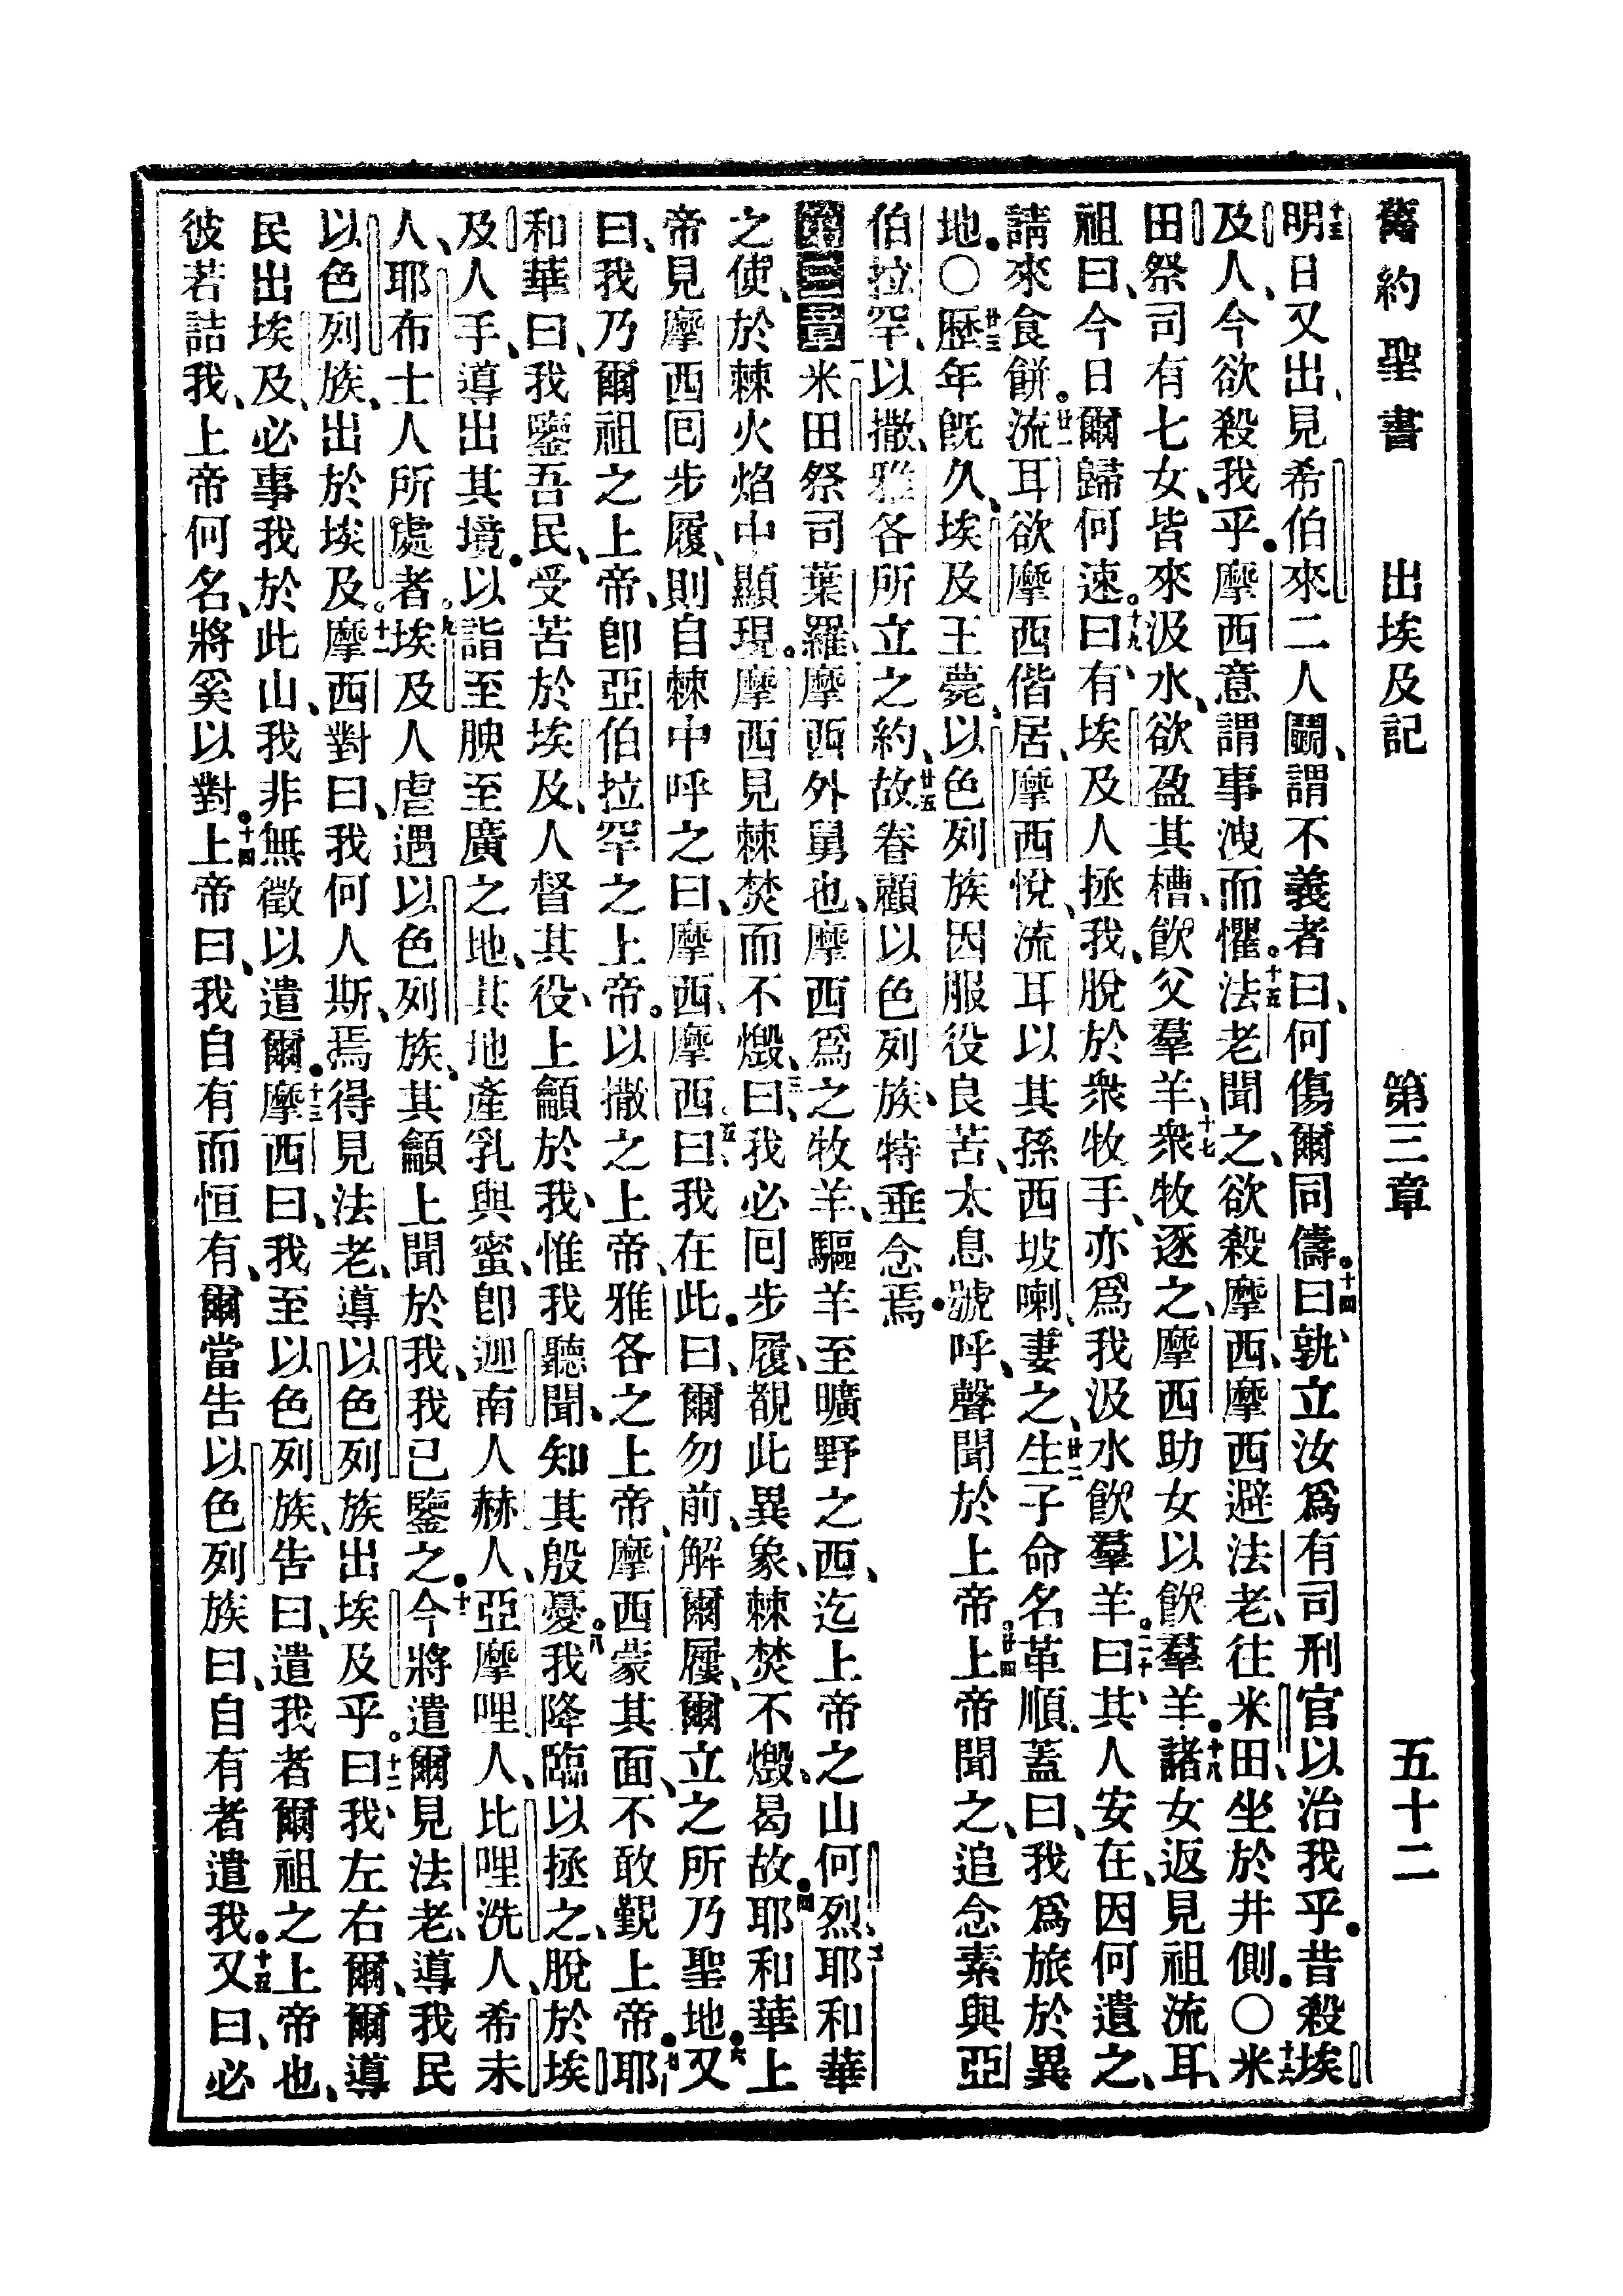 舊約聖書　出埃及記　第三章　五十二
十三明日又出、見希伯來二人鬭、謂不義者曰、何傷爾同儔。十四曰、孰立汝爲有司刑官以治我乎。昔殺埃
及人、今欲殺我乎。摩西意謂事洩而懼。十五法老聞之、欲殺摩西、摩西避法老、往米田、坐於井側。〇十六米
田祭司有七女、皆來汲水、欲盈其槽、飮父羣羊、十七衆牧逐之、摩西助女以飮羣羊。十八諸女返見祖流耳、
祖曰、今日爾歸何速。十九曰、有埃及人拯我、脫於衆牧手、亦爲我汲水飮羣羊。二十曰、其人安在、因何遺之、
請來食餅。廿一流耳欲摩西偕居、摩西悅、流耳以其孫西坡喇、妻之、廿二生子命名革順、蓋曰、我爲旅於異
地。〇廿三歷年旣久、埃及王薨、以色列族因服役良苦、太息號呼、聲聞於上帝。廿四上帝聞之、追念素與亞
伯拉罕、以撒、雅各所立之約、廿五故眷顧以色列族、特垂念焉。
第三章米田祭司葉羅、摩西外舅也、摩西爲之牧羊、驅羊至曠野之西、迄上帝之山何烈、二耶和華
之使、於棘火焰中顯現。摩西見棘焚而不燬、三曰、我必回步履、覩此異象、棘焚不燬、曷故。四耶和華上
帝見摩西回步履、則自棘中呼之曰、摩西、摩西。五曰、我在此。曰、爾勿前、解爾屨、爾立之所乃聖地。六又
曰、我乃爾祖之上帝、卽亞伯拉罕之上帝。以撒之上帝、雅各之上帝、摩西蒙其面、不敢覲上帝。七耶
和華曰、我鑒吾民、受苦於埃及、人督其役、上籲於我、惟我聽聞、知其殷憂。八我降臨以拯之、脫於埃
及人手、導出其境。以詣至腴至廣之地、其地產乳與蜜、卽迦南人、赫人、亞摩哩人、比哩洗人、希未
人、耶布士人所處者。九埃及人虐遇以色列族、其籲上聞於我、我已鑒之。十今將遣爾見法老、導我民
以色列族、出於埃及。十一摩西對曰、我何人斯、焉得見法老、導以色列族出埃及乎。十二曰、我左右爾、爾導
民出埃及、必事我於此山、我非無徵以遣爾。十三摩西曰、我至以色列族、告曰、遣我者爾祖之上帝也、
彼若詰我、上帝何名、將奚以對。十四上帝曰、我自有而恒有、爾當告以色列族曰、自有者遣我。十五又曰、必